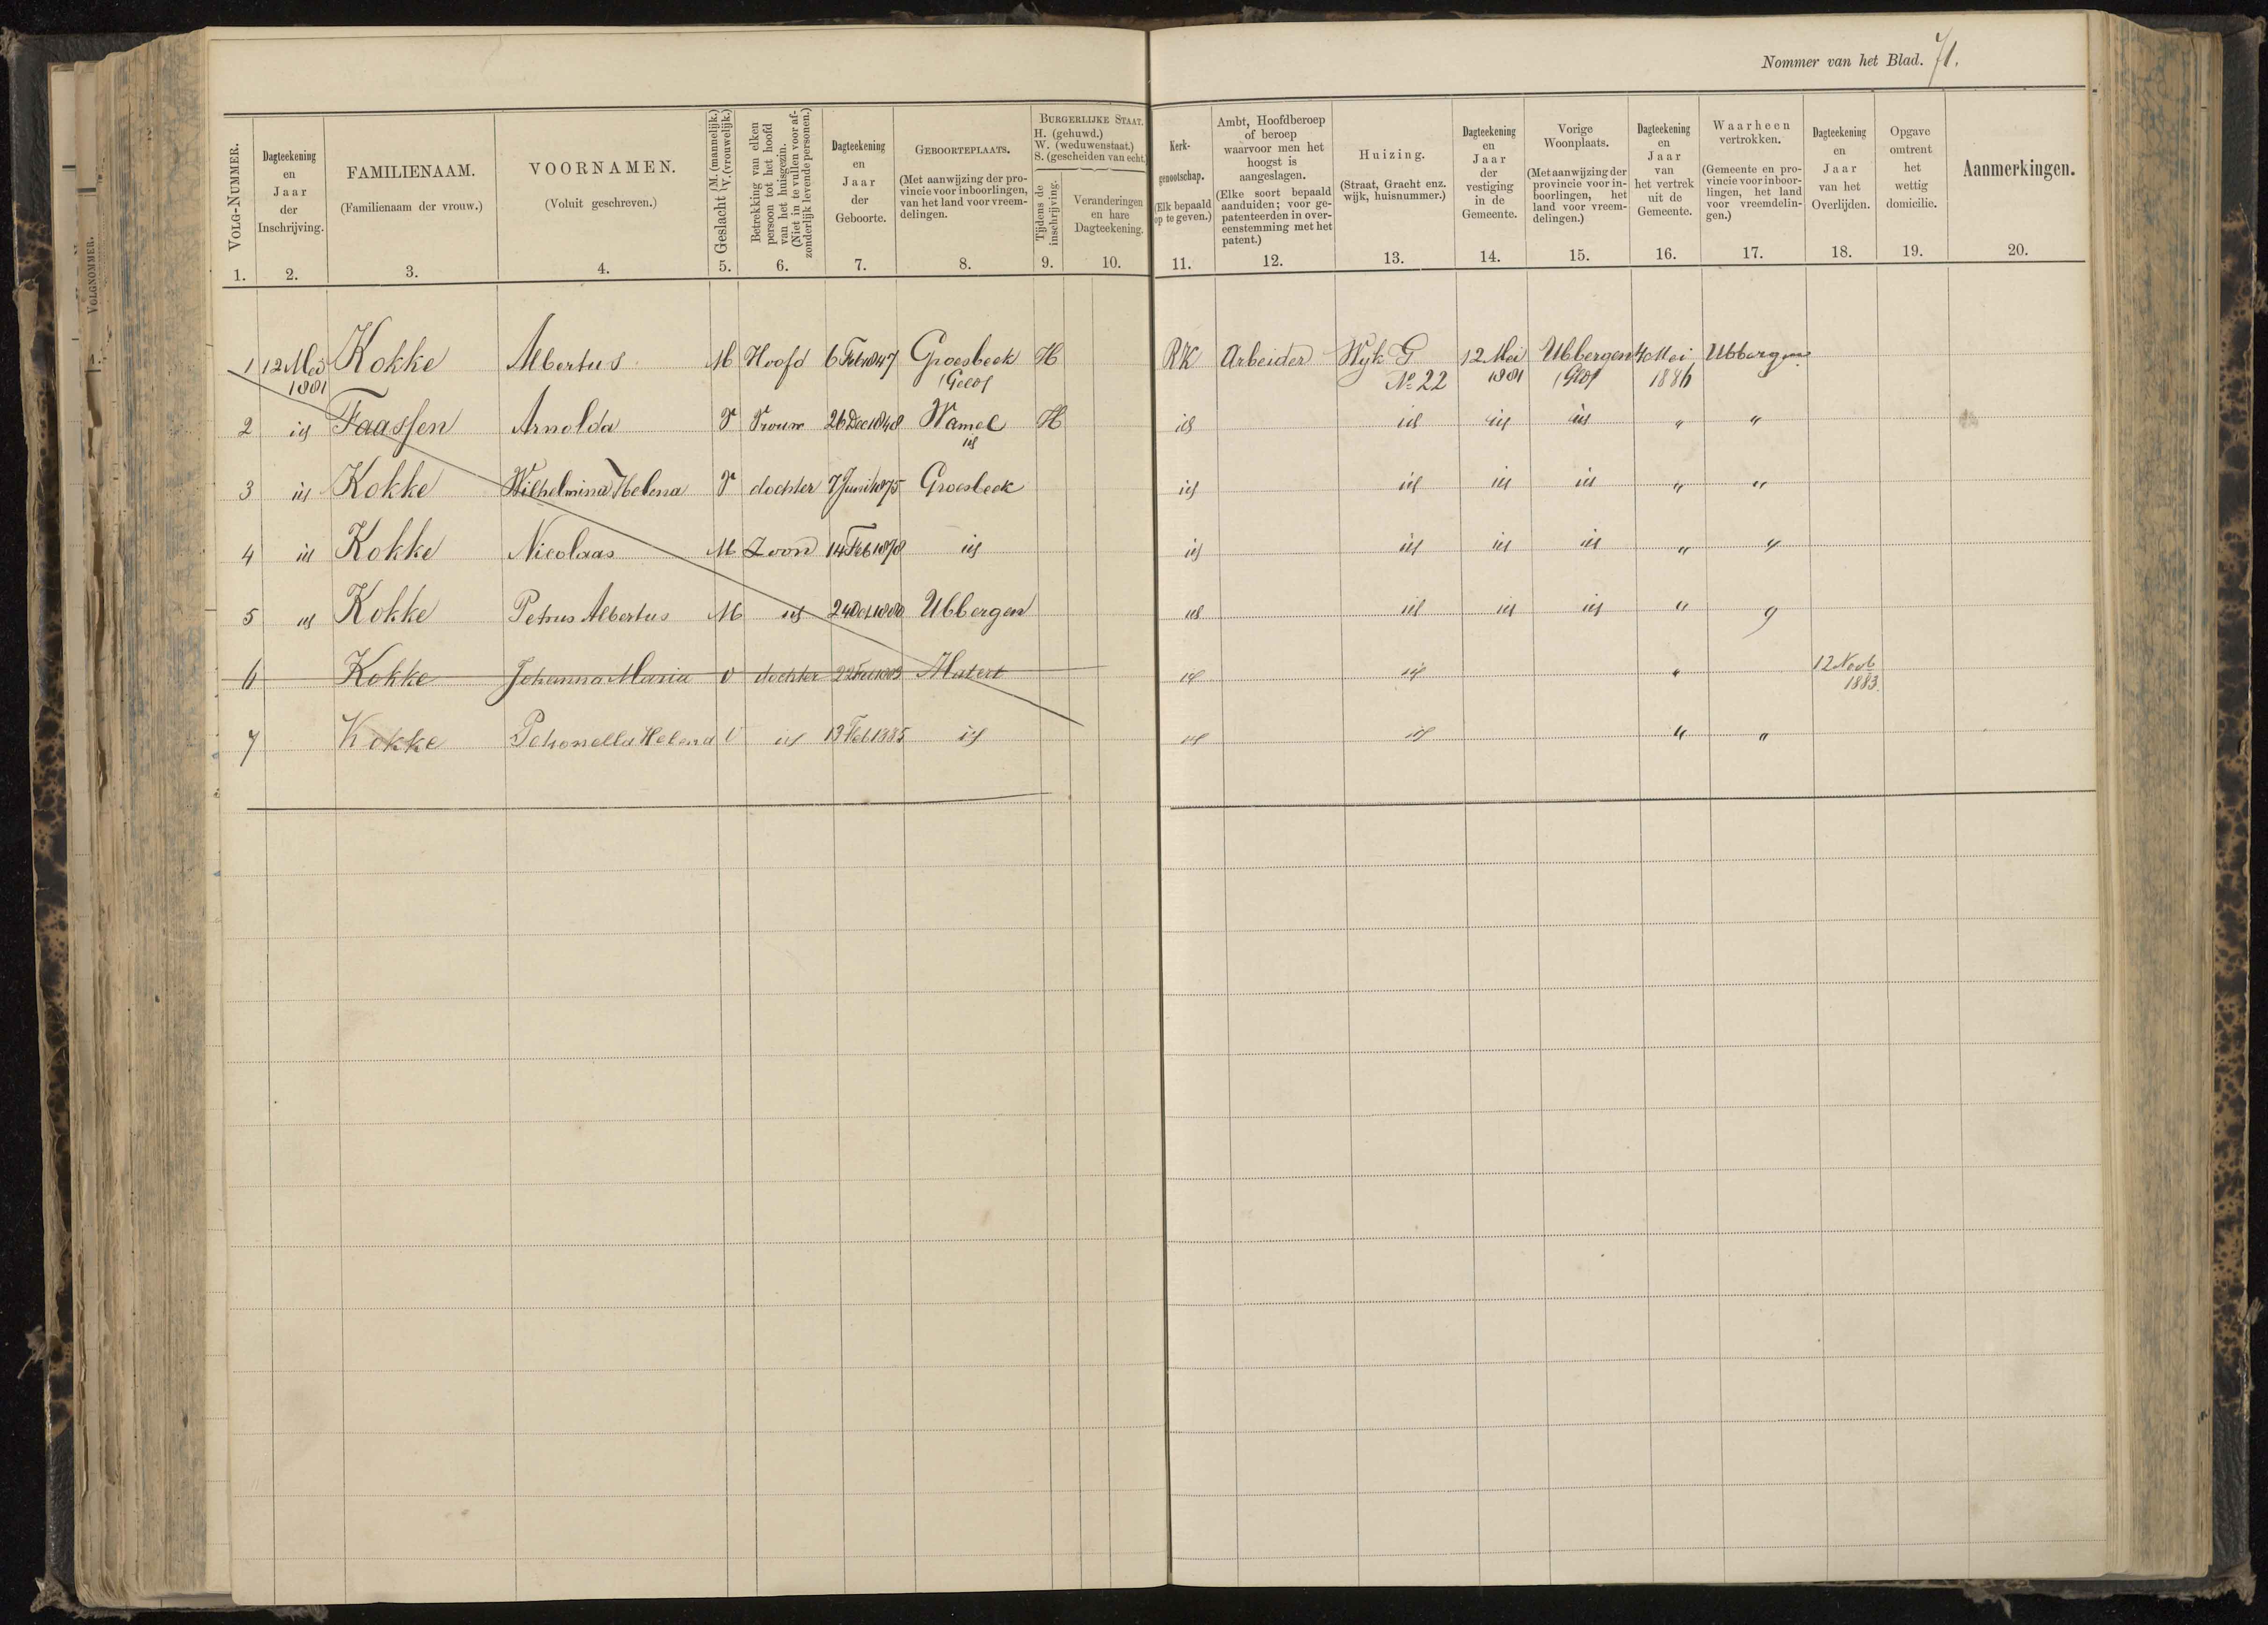 Nommer van het Blad. 71.
VOLGNOMMER.
VOLG-NUMMER. 1.
Dagteekening en Jaar der Inschrijving. 2.
FAMILIENAAM. (Familienaam der vrouw.) 3.
VOORNAMEN. (Voluit geschreven.) 4.
Geslacht M. (mannelijk.) V. (vrouwelijk.) 5.
Betrekking van elken persoon tot het hoofd van het huisgezin. (Niet in te vullen voor afzonderlijk levende personen.) 6.
Dagteekening en Jaar der Geboorte. 7.
GEBOORTEPLAATS. (Met aanwijzing der provincie voor inboorlingen, van het land voor vreemdelingen. 8.
BURGERLIJKE STAAT. H. (gehuwd.) W. (weduwenstaat.) S. (gescheiden van echt.)
Tijdens de inschrijving. 9.
Veranderingen en hare Dagteekening. 10.
Kerkgenootschap. (Elk bepaald op te geven.) 11.
Ambt, Hoofdberoep of beroep waarvoor men het hoogst is aangeslagen. (Elke soort bepaald aanduiden; voor gepatenteerden in overeenstemming met het patent.) 12.
Huizing. (Straat, Gracht enz. wijk, huisnummer.) 13.
Dagteekening en Jaar der vestiging in de Gemeente. 14.
Vorige Woonplaats. (Met aanwijzing der provincie voor inboorlingen, het land voor vreemdelingen.) 15.
Dagteekening en Jaar van het vertrek uit de Gemeente. 16.
Waarheen vertrokken. (Gemeente en provincie voor inboorlingen, het land voor vreemdelingen.) 17.
Dagteekening en Jaar van het Overlijden. 18.
Opgave omtrent het wettig domicilie. 19.
Aanmerkingen. 20.
1 12 Mei Kokke Albertus M Hoofd 6 Feb 1847 Groesbeek H RK Arbeider Wijk G 12 Mei Ubbergen 4 Mei Ubbergen
1881 (Geld) No 22 1881 (Geld) 1886
2 id Faassen Arnolda V Vrouw 26 Dec 1848 Wamel H id id id id " "
id
3 id Kokke Wilhelmina Helena V dochter 7 Juni 1875 Groesbeek id id id id " "
4 id Kokke Nicolaas M Zoon 14 Feb 1878 id id id id id " "
5 id Kokke Petrus Albertus M id 24 1880 Ubbergen id id id id " "
6 Kokke Johanna Maria V dochter 22 1883 Hatert id id " 12 Novb
1883.
7 Kokke Petronella Helena V id 13 Feb 1885 id id id " "